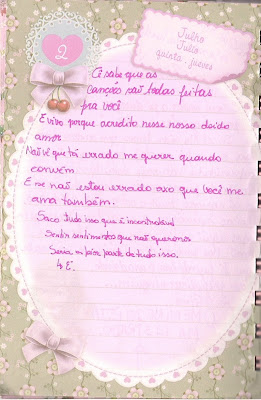 2
Julho
Julio
quinta - jueves
Cê sabe que as
canções são todas feitas
pra você
E vivo porque acredito nesse nosso doido
amor
Não vê que tá errado me querer quando
convém
E se não estou errado axo que você me
ama também.
Saco tudo isso que é incontrolável
Sentir sentimentos que não queremos
Seria a pior parte de tudo isso.